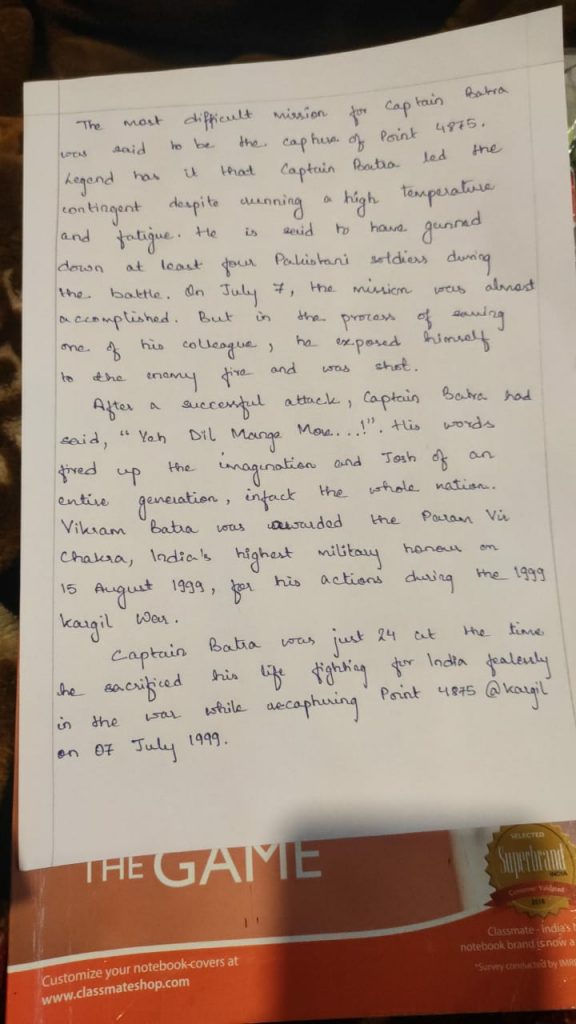 The most difficult mission for Captain Batra
was said to be the capture of Point 4875.
Legend has it that Captain Batra led the
contingent despite running a high temperature
and fatigue. He is said to have gunned
down at least four Pakistani soldiers during
the battle. On July 7, the mission was almost
accomplished. But in the process of saving
one of his colleague, he exposed himself
to the enemy fire and was shot.
After a successful attack, Captain Batra had
said, "Yeh Dil Mange More...!". His words
fired up the imagination and Josh of an
entire generation, infact the whole nation.
Vikram Batra was awarded the Param Vir
Chakra, India's highest military honour on
15 August 1999, for his actions during the 1999
Kargil War.
Captain Batra was just 24 at the time
he sacrificed his life fighting for India fealessly
in the war while recapturing Point 4875 @Kargil
on 07 July 1999.
THE GAME
SELECTED
Superbrand
INDIA
Consumer Validated
2016
Customize your notebook-covers at
www.classmateshop.com
Classmate - India's
notebook brand is now a
*Survey conducted by IMRB